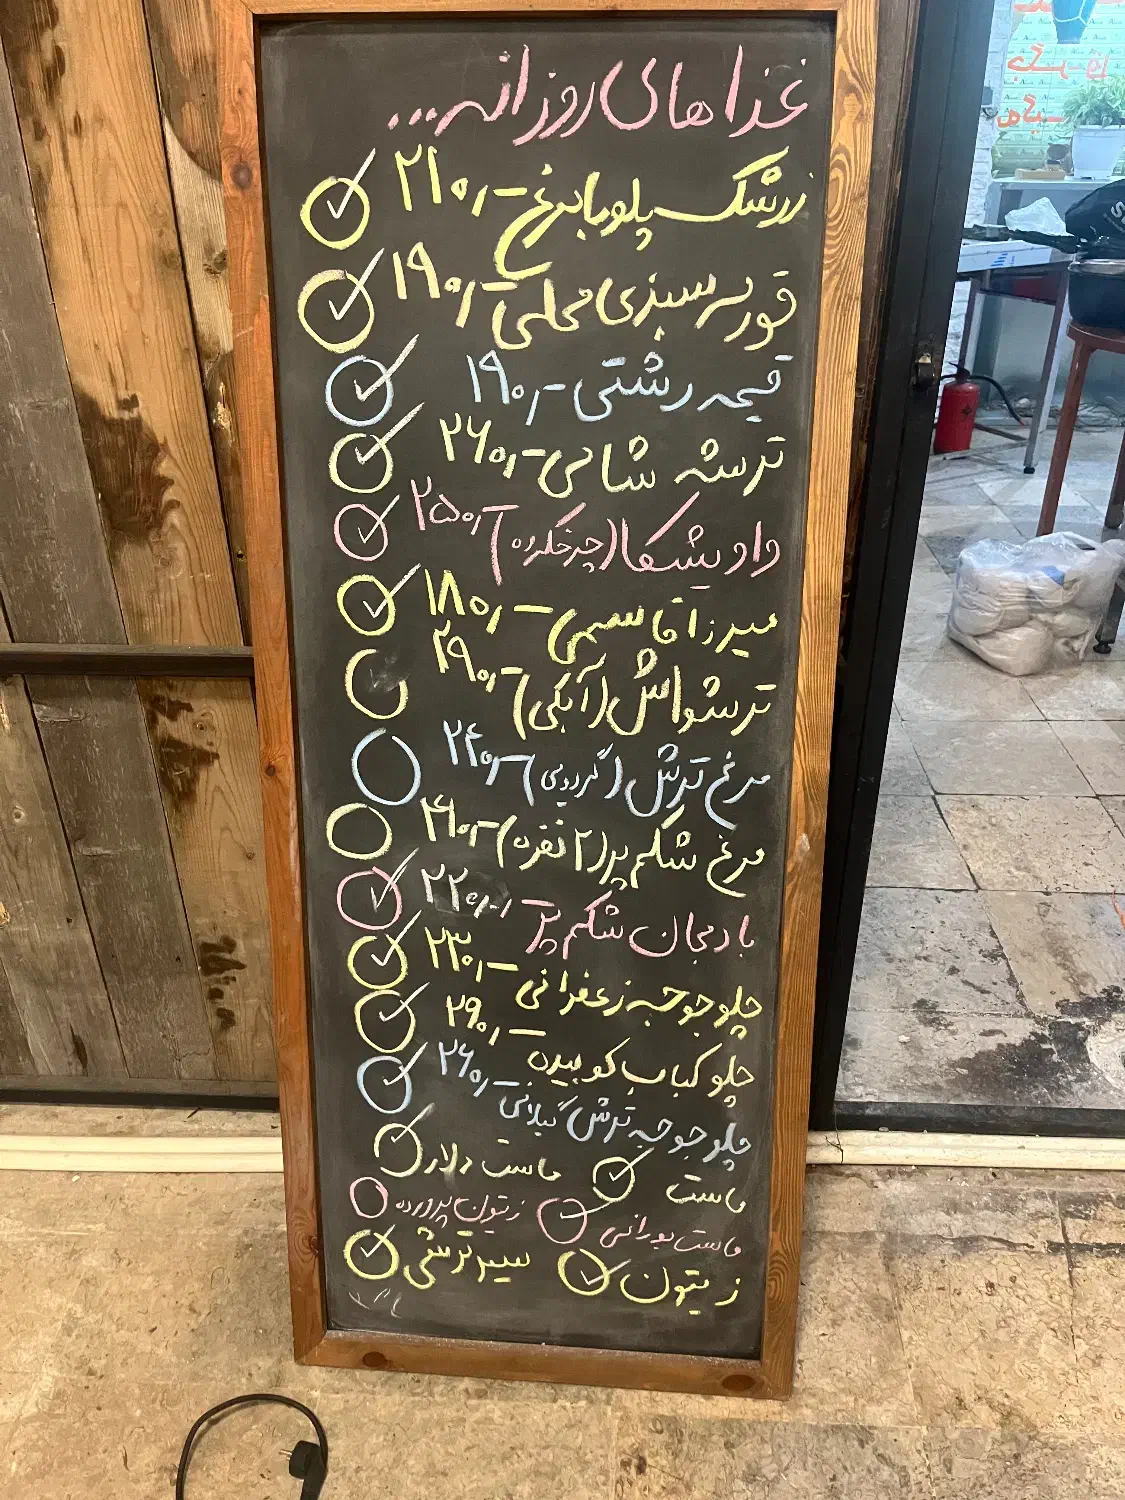 غذاهای روزانه...
زرشک پلو با مرغ -۲۱۰٫
قورمه سبزی محلی -۱۹۰٫
قیمه رشتی -۱۹۰٫
ترشه شامی -۲۶۰٫
واویشکا (چرخکرده) -۲۵۰٫
میرزا قاسمی -۱۸۰٫
ترشواش (آبکی) -۲۹۰٫
مرغ ترش (گردویی) -۲۴۰٫
مرغ شکم پر (۲ نفره) -۴۶۰٫
بادمجان شکم پر -۲۲۰٫
چلو جوجه زعفرانی -۲۳۰٫
چلو کباب کوبیده -۲۹۰٫
چلو جوجه ترش گیلانی -۲۶۰٫
ماست ماست دلار
ماست بورانی زیتون پرورده
زیتون سیر ترشی